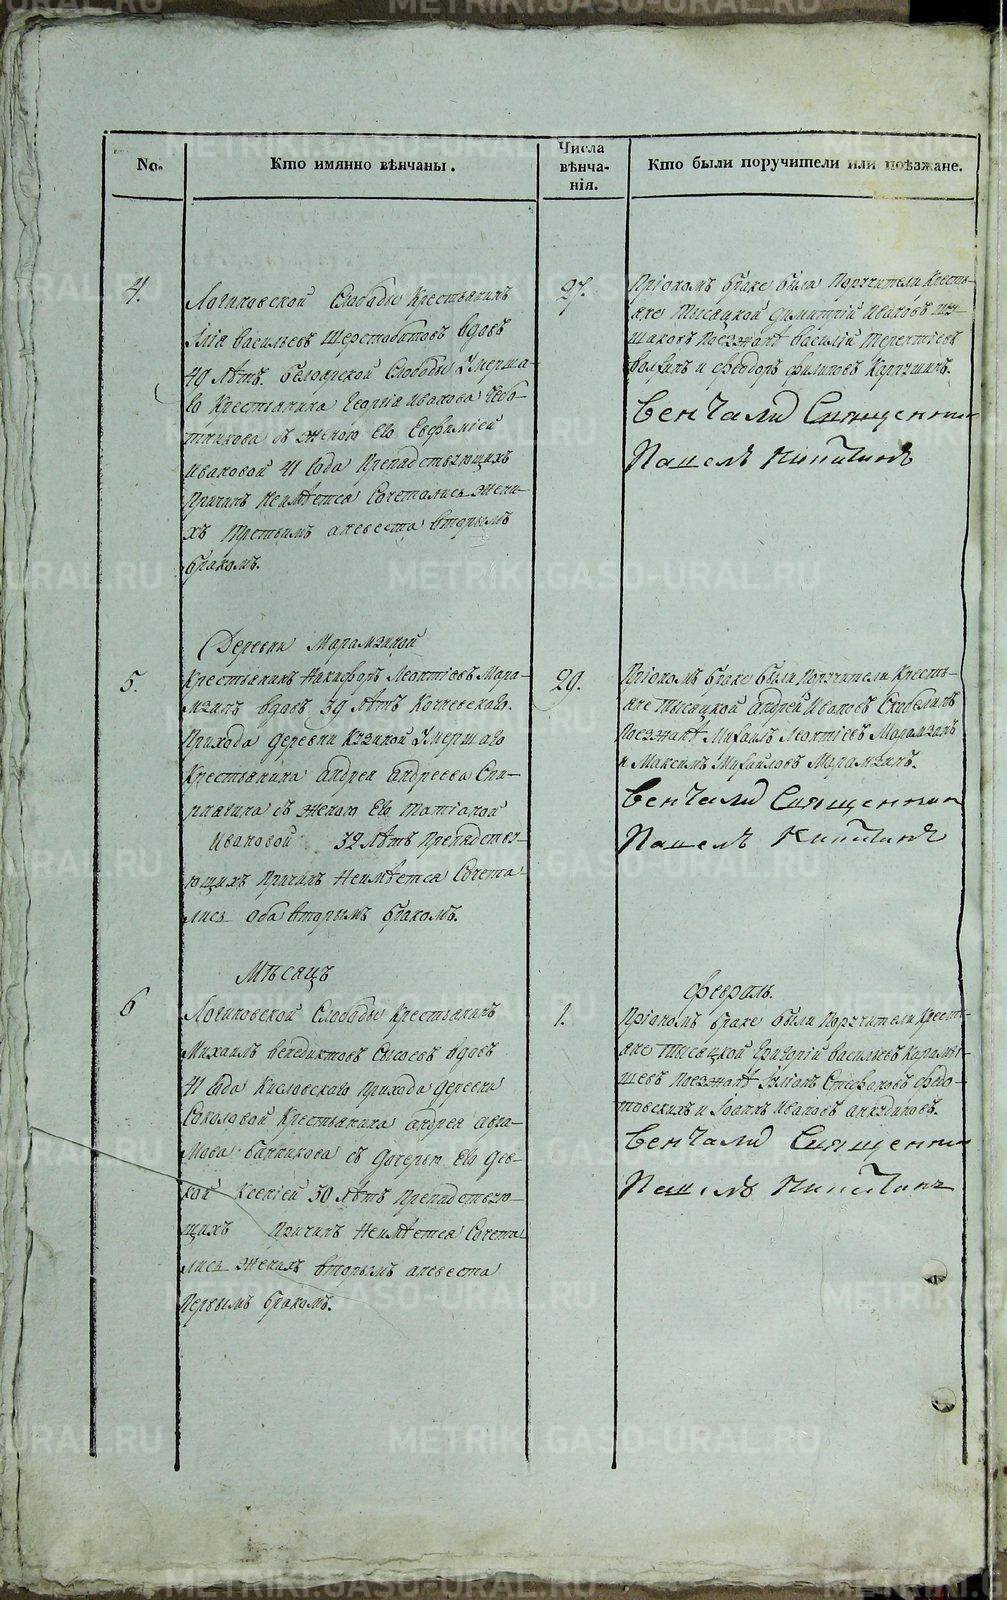 No.
Кто имянно вѣнчаны.
Числа
вѣнча-
нія.
Кто были поручители или поѣзжане.
4.
Логиновской Слободы Крестьянинъ
Васильевъ Шерстобитовъ вдовъ
49 лѣтъ. Белоярской Слободы Умерша-
го Крестьянина Георгія Иванова
съ женою Его Евфиміей
Ивановой 41 Года Препядствующихъ
Причинъ Неимѣется Сочетались Жени-
хъ Третьимъ аневеста вторымъ
бракомъ.
27.
браке были Поручители Кресть-
яне Тысяцкой Димитрій Ивановъ
Поезжанѣ Василій Терентіевъ
и Феодоръ Филиповъ
венчали Священникъ
Павелъ
Деревни Марамзиной
5.
Крестьянинъ Никифоръ Леонтіевъ Мара-
мзинъ вдовъ 39 лѣтъ
Прихода Деревни Умершаго
Крестьянина андрея андреева
съ женою Его Татіаной
Ивановой 32 лѣтъ Препядству-
ющихъ Причинъ Неимѣется Сочета-
лись Оба вторымъ бракомъ.
29.
браке были Поручители Кресть-
яне Тысяцкой андрей Ивановъ
Поезжанѣ Михаилъ Леонтіевъ Марамзинъ
и Максимъ Михайловъ Марамзинъ.
венчали Священникъ
Павелъ
Мѣсяцъ
Февраль.
6
Логиновской Слободы Крестьянинъ
Михаилъ Венедиктовъ Сысоевъ вдовъ
41 Года Кисловскаго Прихода Деревни
Соколовой Крестьянина андрея авра-
мова Банникова съ Дочерью Его Дев-
кой Ксеніей 30 лѣтъ Препядствую-
щихъ Причинъ Неимѣется Сочета-
лись Женихъ вторымъ аневеста
Первымъ бракомъ.
1.
браке были Поручители Кресть-
яне Тысяцкой Григорій Васильевъ
Поезжанѣ Стефановъ Федо-
товскихъ и Іоаннъ Ивановъ
венчали Священникъ
Павелъ
METRIKI.GASO-URAL.RU